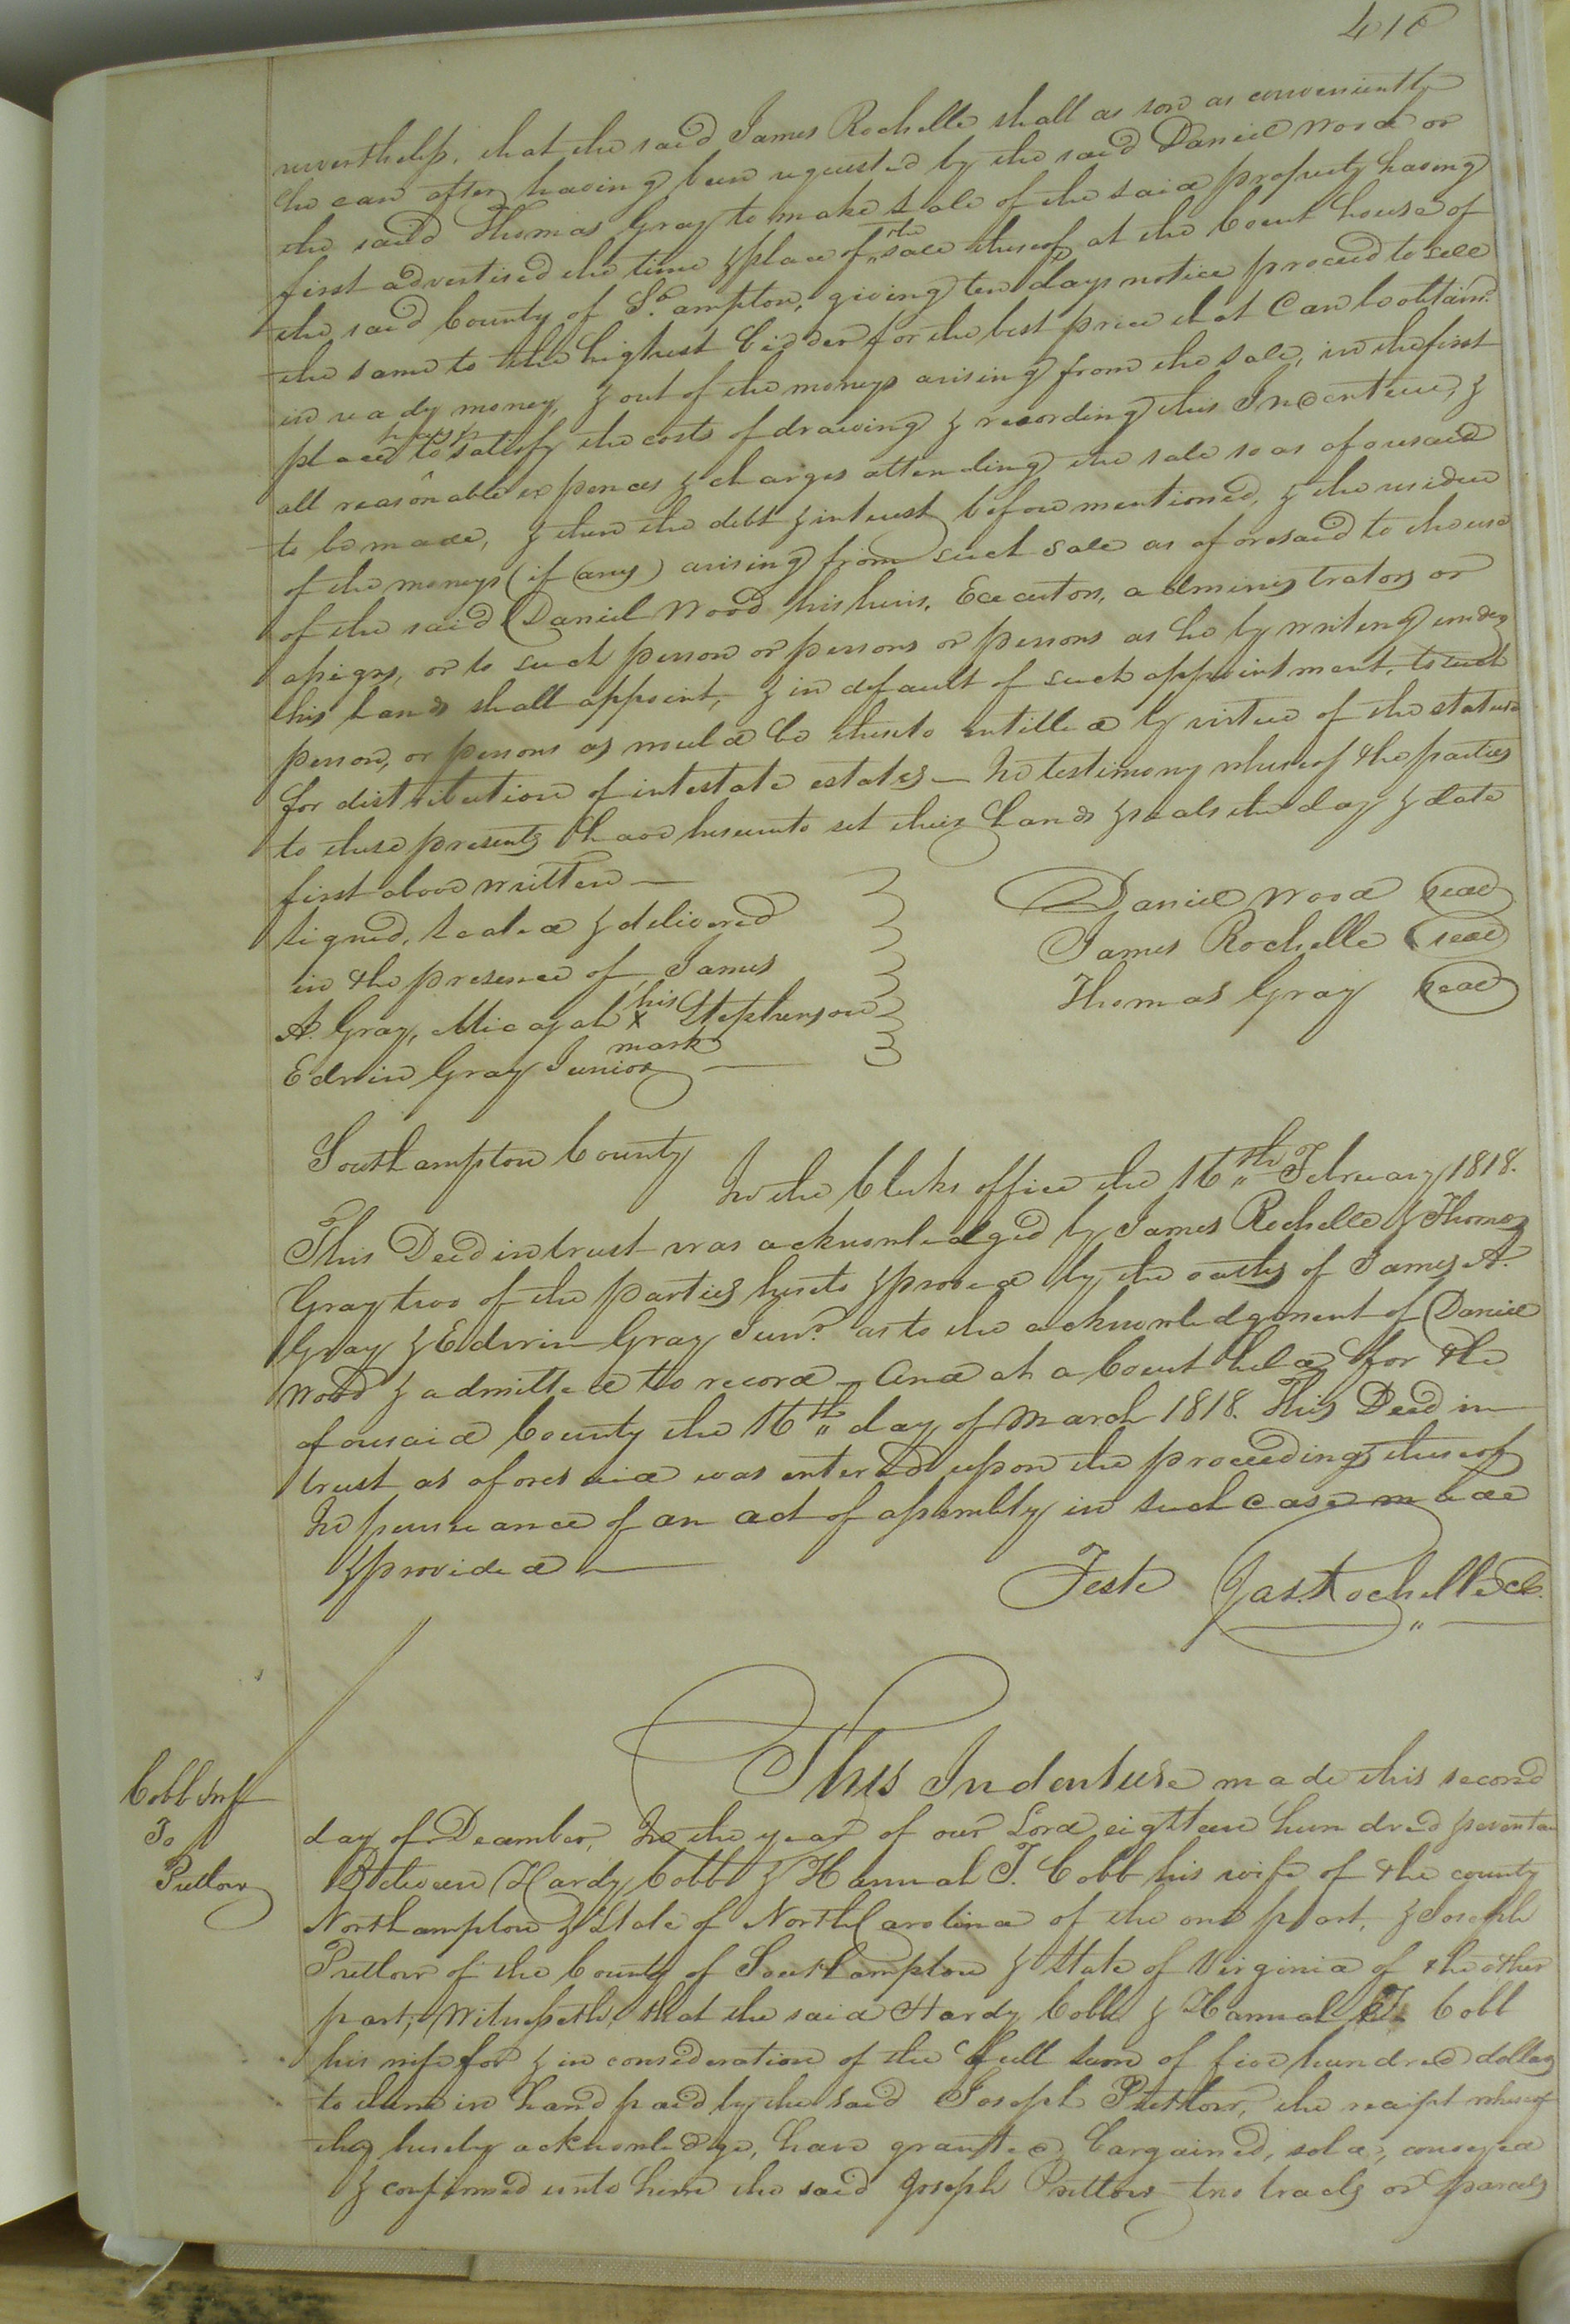 418
nevertheless, that the said James Rochelle shall as soon as conveniently
he can after having been requested by the said Daniel Wood or
the said Thomas Gray to make sale of the said property having
first advertised the time & place of the sale thereof, at the Court house of
the said County of So.ampton, giving ten days notice proceed to sell
the same to the highest bidder for the best price that Can be obtain.d
in ready money, & out of the moneys arising from the sale, in the first
place to satisfy the costs of drawing & recording this Indenture, &
all reasonable expences & charges attending the sale so as aforesaid
to be made, & then the debt & interest before mentioned, & the residue
of the moneys (if any) arising from such sale as aforesaid to the use
of the said Daniel Wood his heirs, Executors, administrators or
assigns, or to such person or persons or persons as he by writing under
his hands shall appoint, & in default of such appointment, to such
person, or persons as would be thereto entitled by virtue of the statute
for distribution of intestate estates — In testimony whereof the parties
to these presents have hereunto set their hands & seals the day & date
first above written —
Signed, sealed & delivered
in the presence of James
A. Gray, Micajah his X mark Stephenson
Edwin Gray Junior —
Daniel Wood seal
James Rochelle seal
Thomas Gray seal
Southampton County
In the Clerks office the 16th February 1818.
This Deed in trust was acknowledged by James Rochelle & Thomas
Gray two of the parties hereto & proved by the oaths of James A.
Gray & Edwin Gray Junr. as to the acknowledgment of Daniel
Wood & admitted to record — And at a Court held for the
aforesaid County the 16th day of March 1818. This Deed in
trust as aforesaid was entered upon the proceedings thereof
In pursuance of an act of assembly in such case made
& provided —
Teste Jas. Rochelle Cl.
Cobb &wf
To
Pretlow
This Indenture made this second
day of December, In the year of our Lord eighteen hundred & seventeen
Between Hardy Cobb & Hannah T. Cobb his wife of the county
Northampton & State of North Carolina of the one part, & Joseph
Pretlow of the County of Southampton & State of Virginia of the other
part, Witnesseth, that the said Hardy Cobb & Hannah T. Cobb
his wife for & in consideration of the full sum of five hundred dollars
to them in hand paid by the said Joseph Pretlow, the receipt whereof
they hereby acknowledge, have granted, bargained, sold, conveyed
& confirmed unto him the said Joseph Pretlow two tracts or parcels